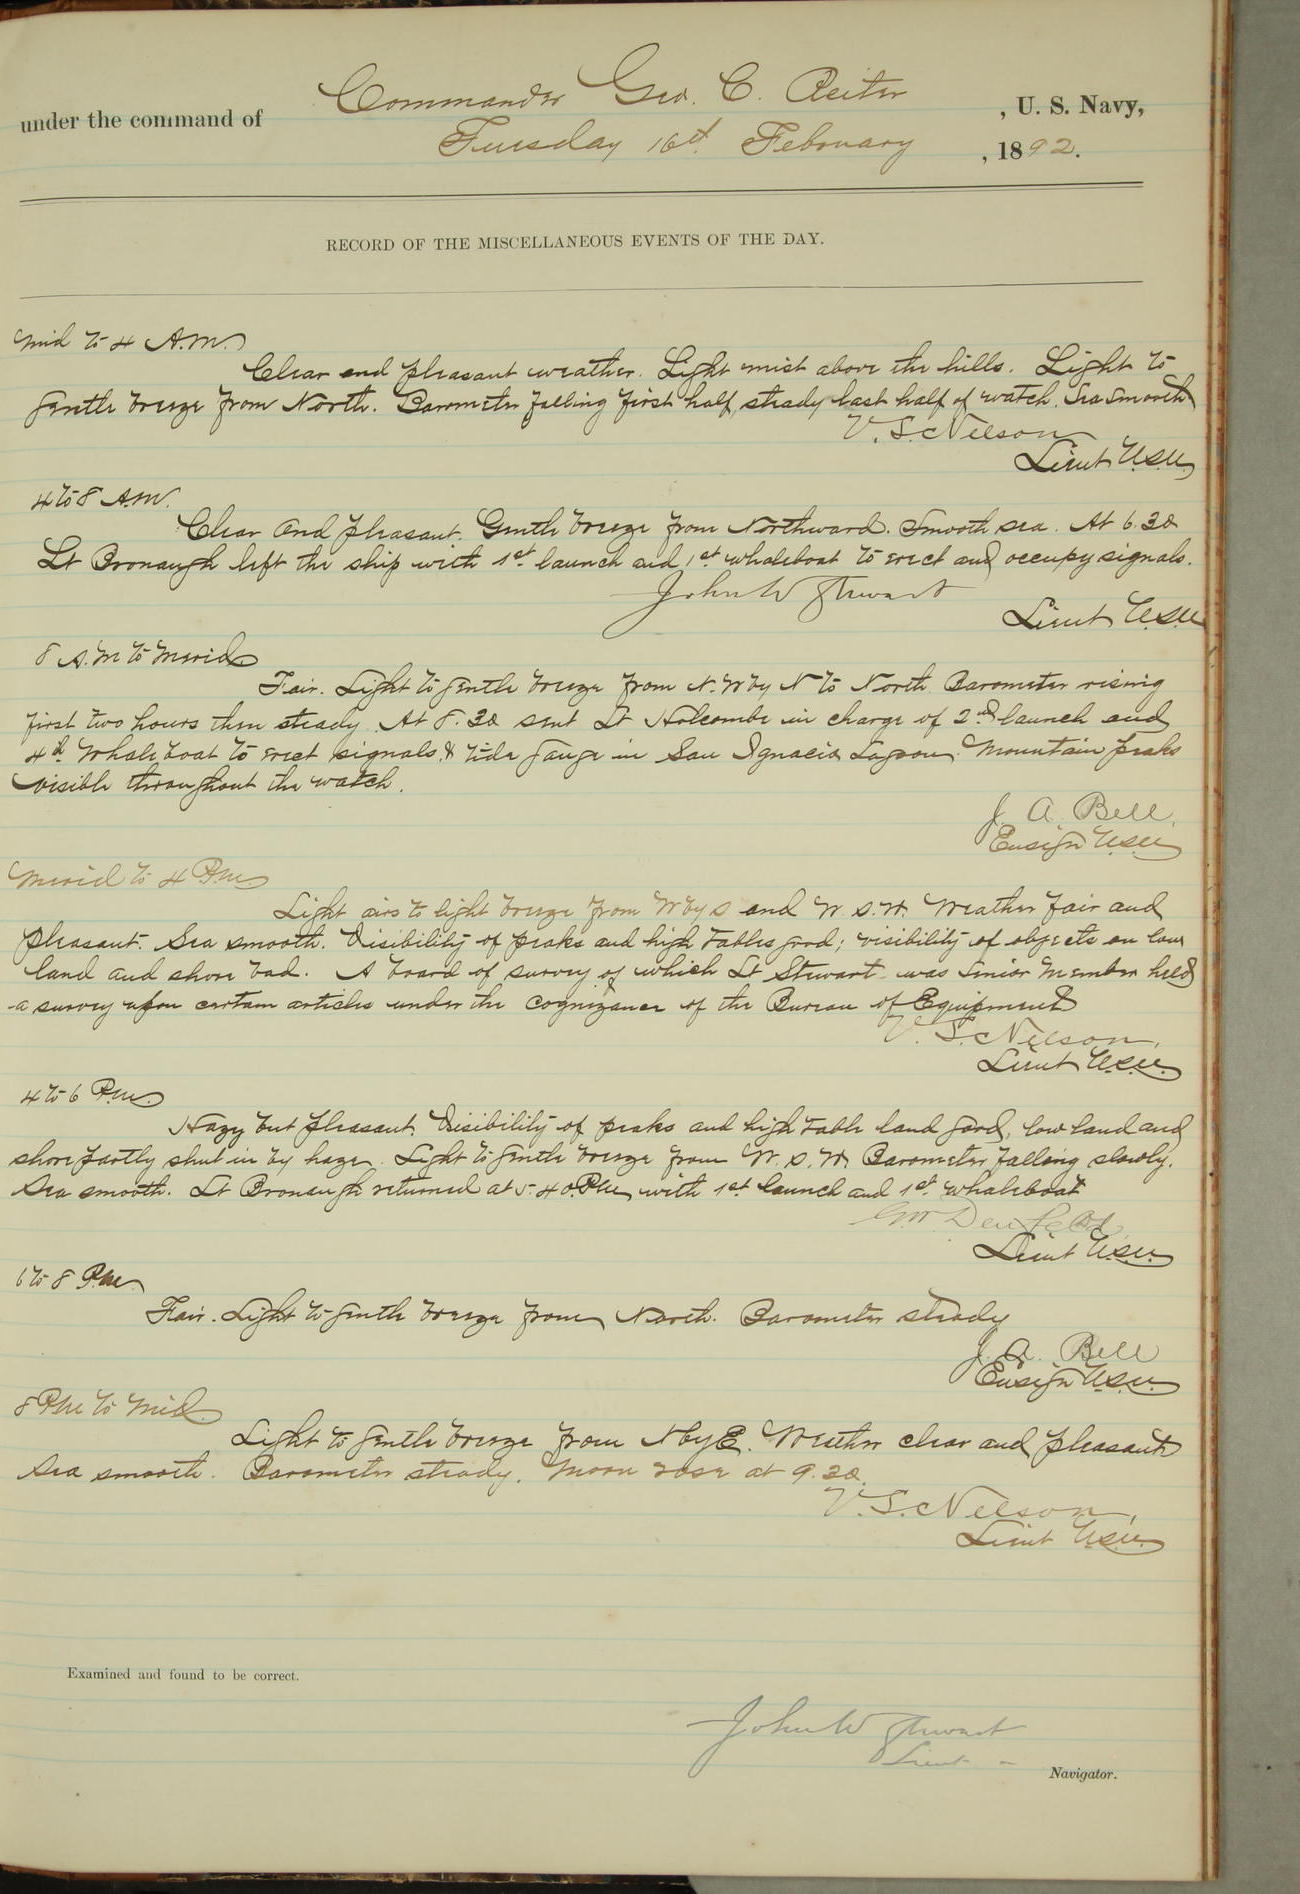 under the command of Commander Geo. C. Reiter , U. S. Navy,
Tuesday 16th February , 1892.
RECORD OF THE MISCELLANEOUS EVENTS OF THE DAY.
Mid to 4 A.M.
Clear and pleasant weather. Light mist above the hills. Light to
gentle breeze from North. Barometer falling first half, steady last half of watch. Sea smooth
V. S. Nelson
Lieut U.S.N.
4 to 8 A.M.
Clear and pleasant. Gentle breeze from Northward. Smooth sea. At 6.30
Lt Bronaugh left the ship with 1st launch and 1st whaleboat to erect and occupy signals.
John W Stewart
Lieut U.S.N
8 A.M to Merid
Fair. Light to gentle breeze from N.W by N to North. Barometer rising
first two hours then steady. At 8.30 sent Lt Holcombe in charge of 2nd launch and
4th Whaleboat to erect signals & tide gauge in San Ignacio Lagoon. Mountain peaks
visible throughout the watch.
J. A. Bell.
Ensign U.S.N
Merid to 4 P.M.
Light airs to light breeze from W by S and W. S. W. Weather fair and
pleasant. Sea smooth. Visibility of peaks and high tables good; visibility of objects on low
land and shore bad. A board of survey of which Lt Stewart was Senior Member held
a survey upon certain articles under the cognizance of the Bureau of Equipment
V. S. Nelson,
Lieut U.S.N.
4 to 6 P.M.
Hazy but pleasant. Visibility of peaks and high table land good, low land and
shore partly shut in by haze. Light to gentle breeze from W. S. W. Barometer falling slowly.
Sea smooth. Lt Bronaugh returned at 5.40 P.M. with 1st launch and 1st whaleboat
G.W. Denfeld,
Lieut U.S.N.
6 to 8 P.M.
Fair. Light to gentle breeze from North. Barometer steady
J. A. Bell
Ensign U.S.N.
8 P.M. to Mid.
Light to gentle breeze from N by E. Weather clear and pleasant
Sea smooth. Barometer steady. Moon rose at 9.30.
V. S. Nelson,
Lieut U.S.N.
Examined and found to be correct.
John W Stewart
Lieut -
Navigator.